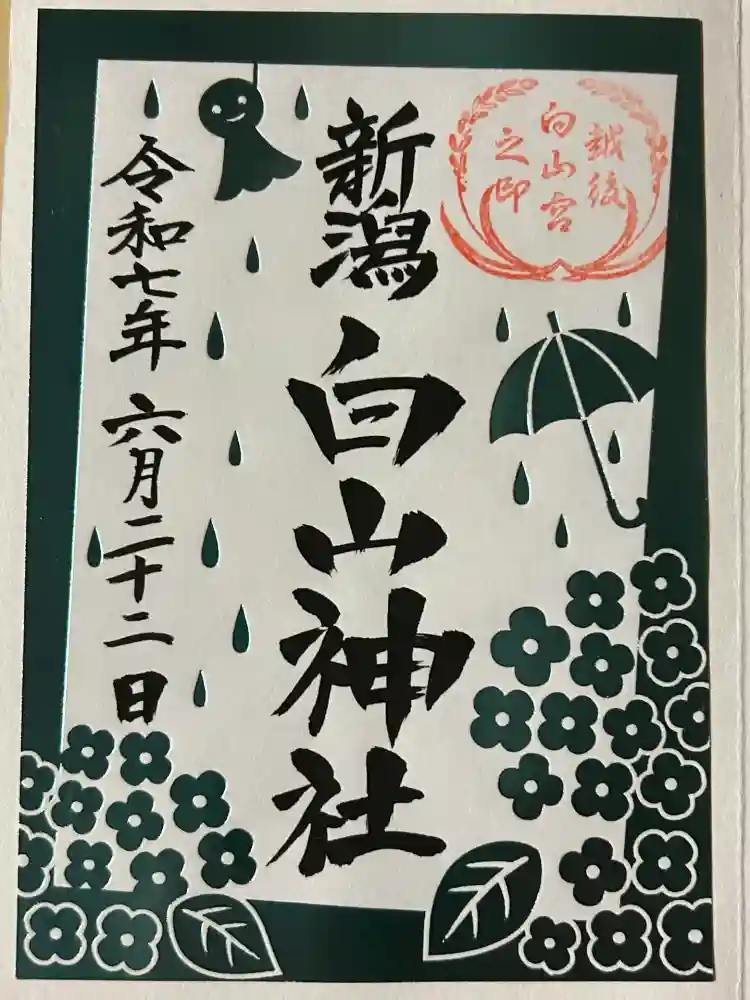 越後
白山宮
之印
新潟白山神社
令和七年六月二十二日